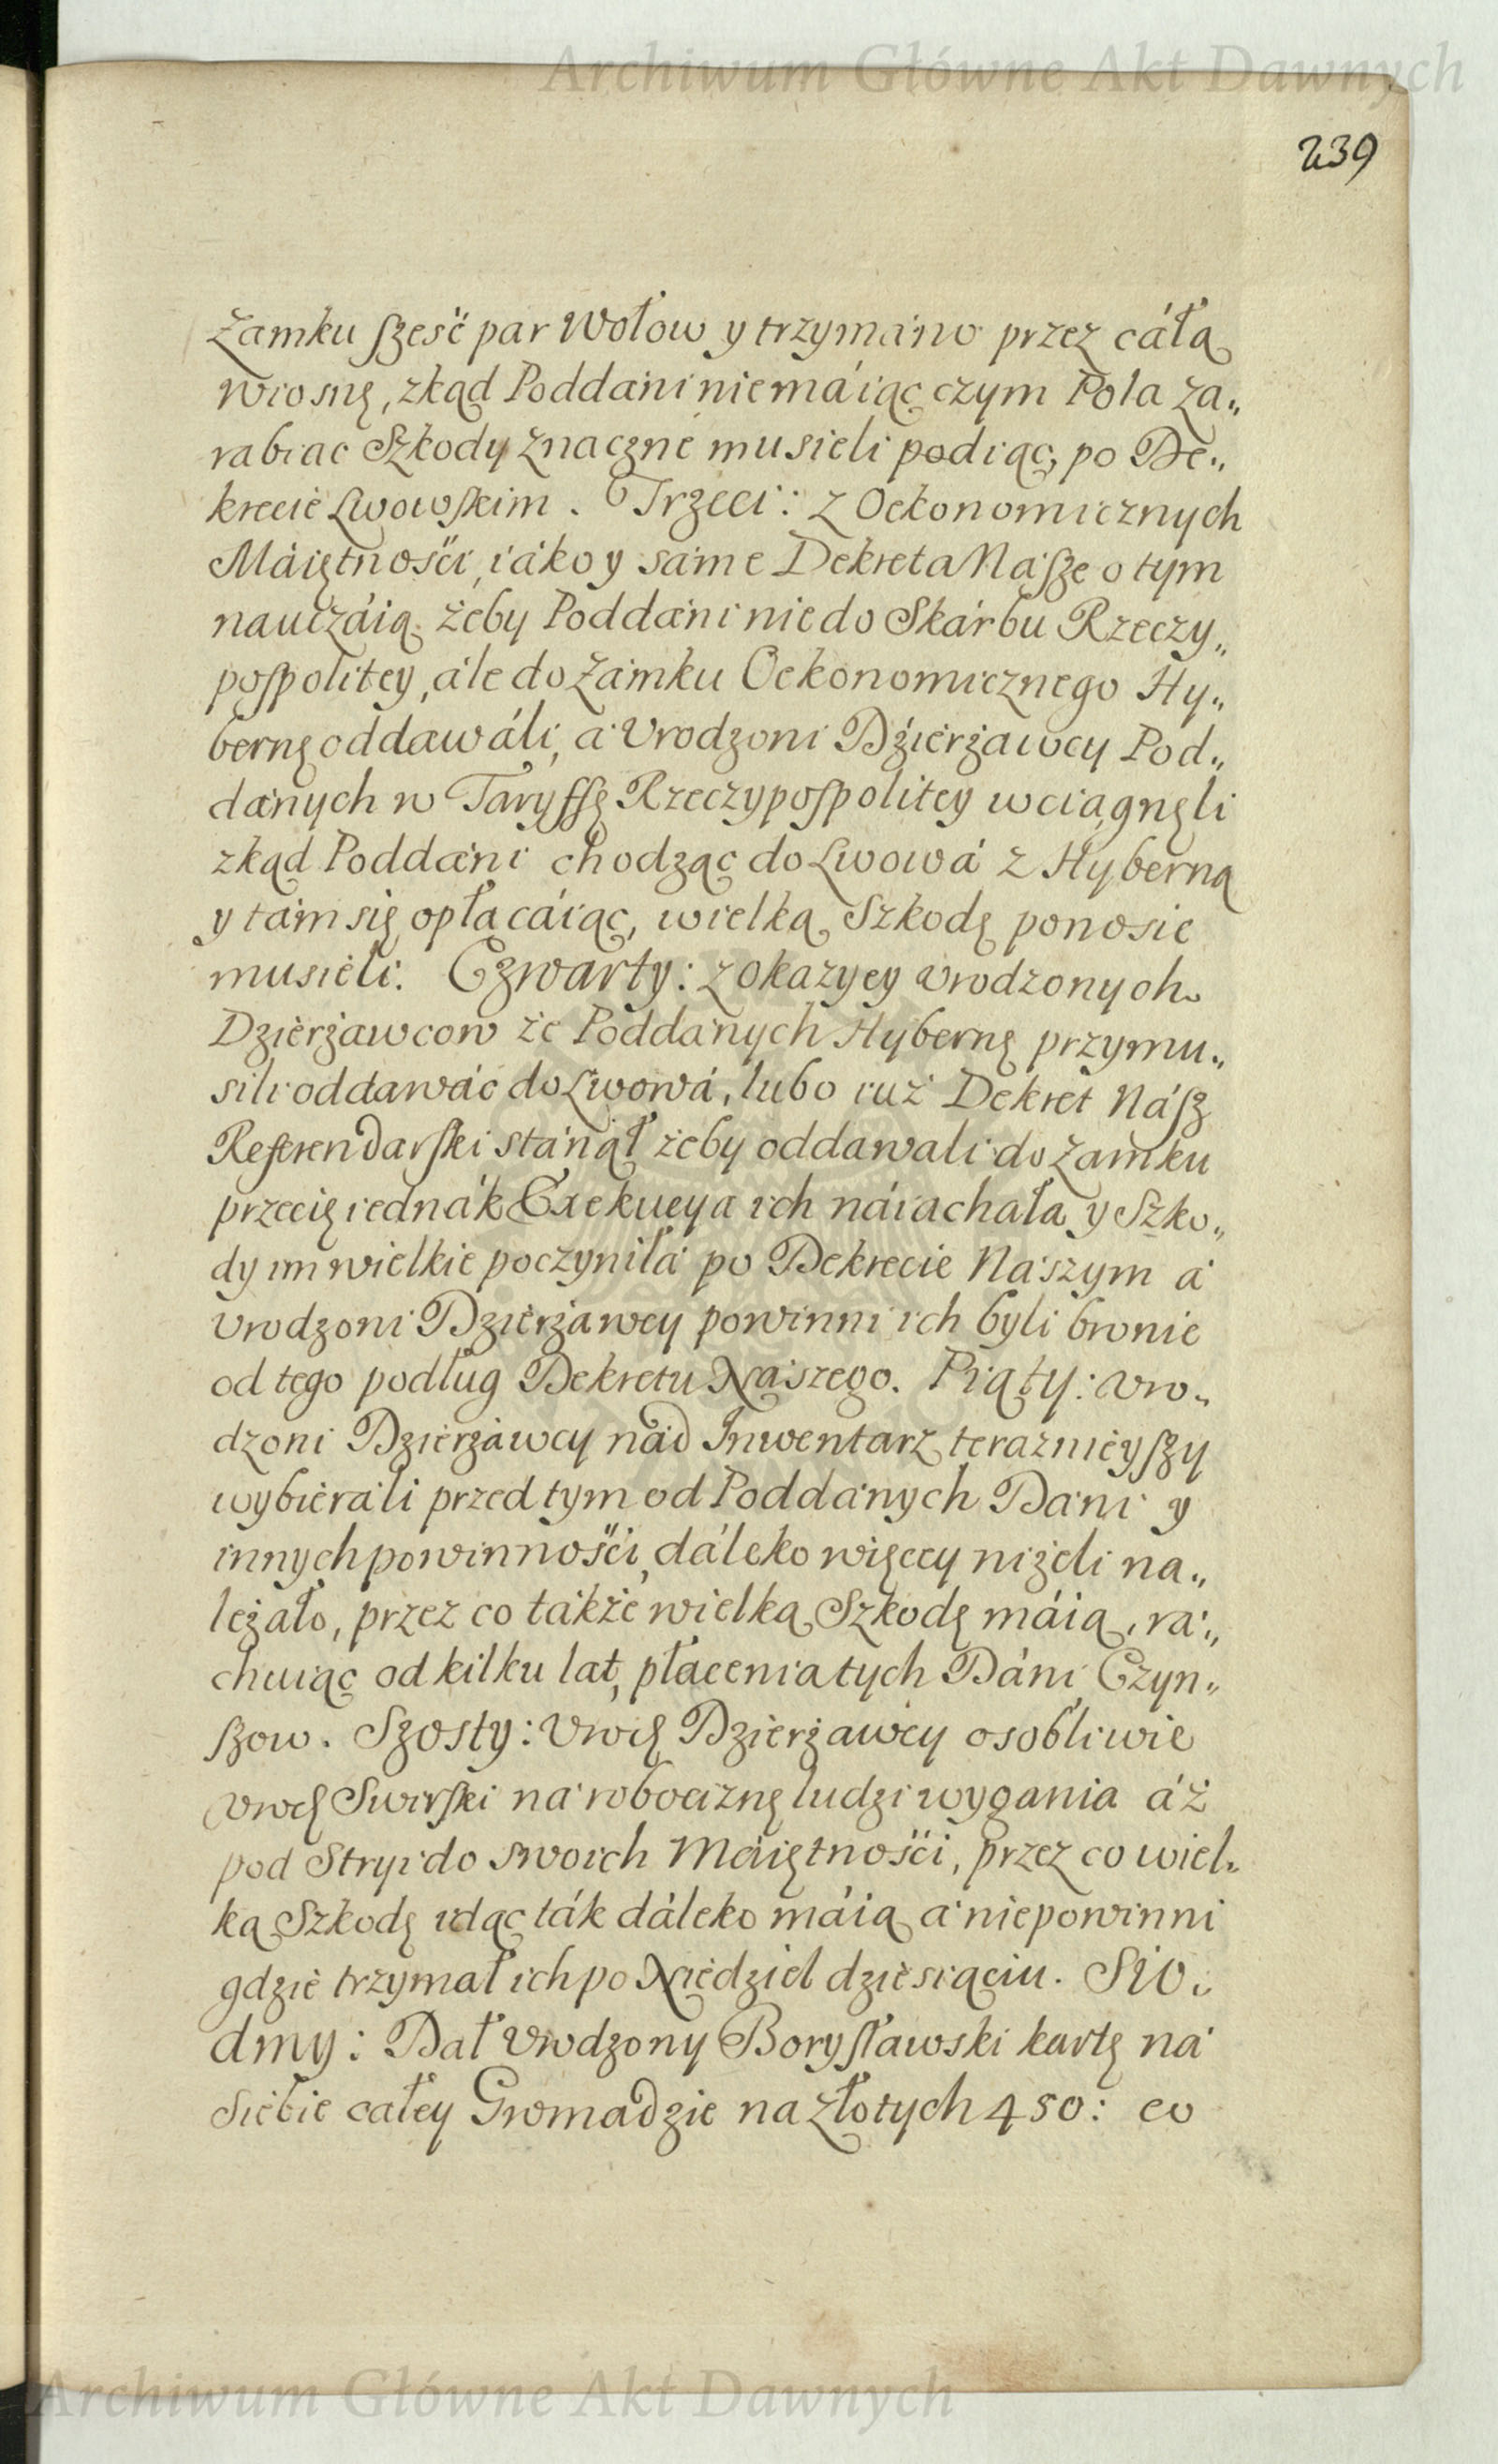 Archiwum Główne Akt Dawnych
239
Zamku szesć par Wołow y trzymáno przez cáłą
wiosnę, zkąd Poddáni niemáiąc czym Pola za„
rabiac Szkody znaczne musieli podiąc, po De„
krecie Lwowskim. Trzeci: z Oekonomicznych
Máiętnosći, iáko y sáme Dekreta Násze o tym
nauczáią. żeby Poddáni nie do Skárbu Rzeczy„
pospolitey, ále do Zámku Oekonomicznego Hy„
bernę oddawáli, á Vrodzoni Dźierżawcy Pod„
dánych w Taryffę Rzeczypospolitey wciągnęli
zkąd Poddáni chodząc do Lwowá z Hyberną
y tám się opłacáiąc, wielką Szkodę ponosic
musieli. Czwarty: z okazyey vrodzonych
Dzierżawcow że Poddánych Hybernę przymu„
sili oddawác do Lwowá, lubo iuż Dekret Nász
Referendarski stánął żeby oddawali do Zamku
przecię iednák Exekucya ich náiachała y Szko„
dy im wielkie poczyniłá po Dekrecie Naszym á
Vrodzoni Dzierżáwcy powinni ich byli bronic
od tego podług Dekretu Nászego. Piąty: Vro„
dzoni Dzierżáwcy nád Inwentarz teraznieyszy
wybieráli przed tym od Poddánych Dáni y
innych powinnosći, dáleko więcey niżeli na„
leżało, przez co tákże wielką Szkodę máią, rá„
chuiąc od kilku lat, płacenia tych Dáni Czyn„
szow. Szosty: Vrodz Dzierżawcy osobliwie
Vrodz Swirski ná robociznę ludzi wygania áż
pod Stryi do swoich Máiętnosći, przez co wiel„
ką Szkodę idąc ták dáleko máią á niepowinni
gdzie trzymał ich po Niedziel dziesiąciu. Sio„
dmy: Dał Vrodzony Borysławski kartę ná
siebie całey Gromadzie na złotych 450: co
Archiwum Główne Akt Dawnych